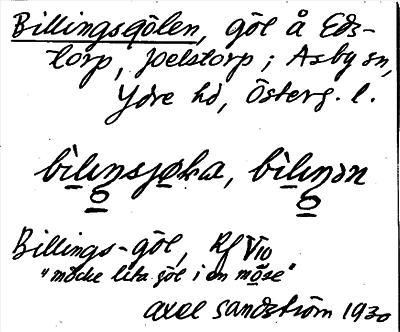 Billingsgölen, göl å Eds-
torp, Joelstorp; Asby sn,
Ydre hd, Österg. l.
Billings-göl, Rf V10
"möcke lita göl i en möse"
Axel Sandström 1930